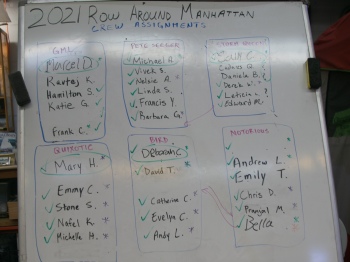 2021 ROW AROUND MANHATTAN
CREW ASSIGNMENTS
GML
Marcel D.
Kavtaj K.
Hamilton S.
Katie G.
Frank C.
PETE SEEGER
Michael A.
Vivek S.
Nelsie A.
Linda S.
Francis Y.
Barbara G.
Daniela B.
Derek
Leticia
Edward M.
QUIXOTIC
Mary H.
Emmy C.
Stone S.
Nafel K.
Michelle H.
BIRD
Deborah C.
David T.
Catherine C.
Evelyn C.
Andy L.
NOTORIOUS
Andrew L.
Emily T.
Chris D.
Pranjal M.
Bella